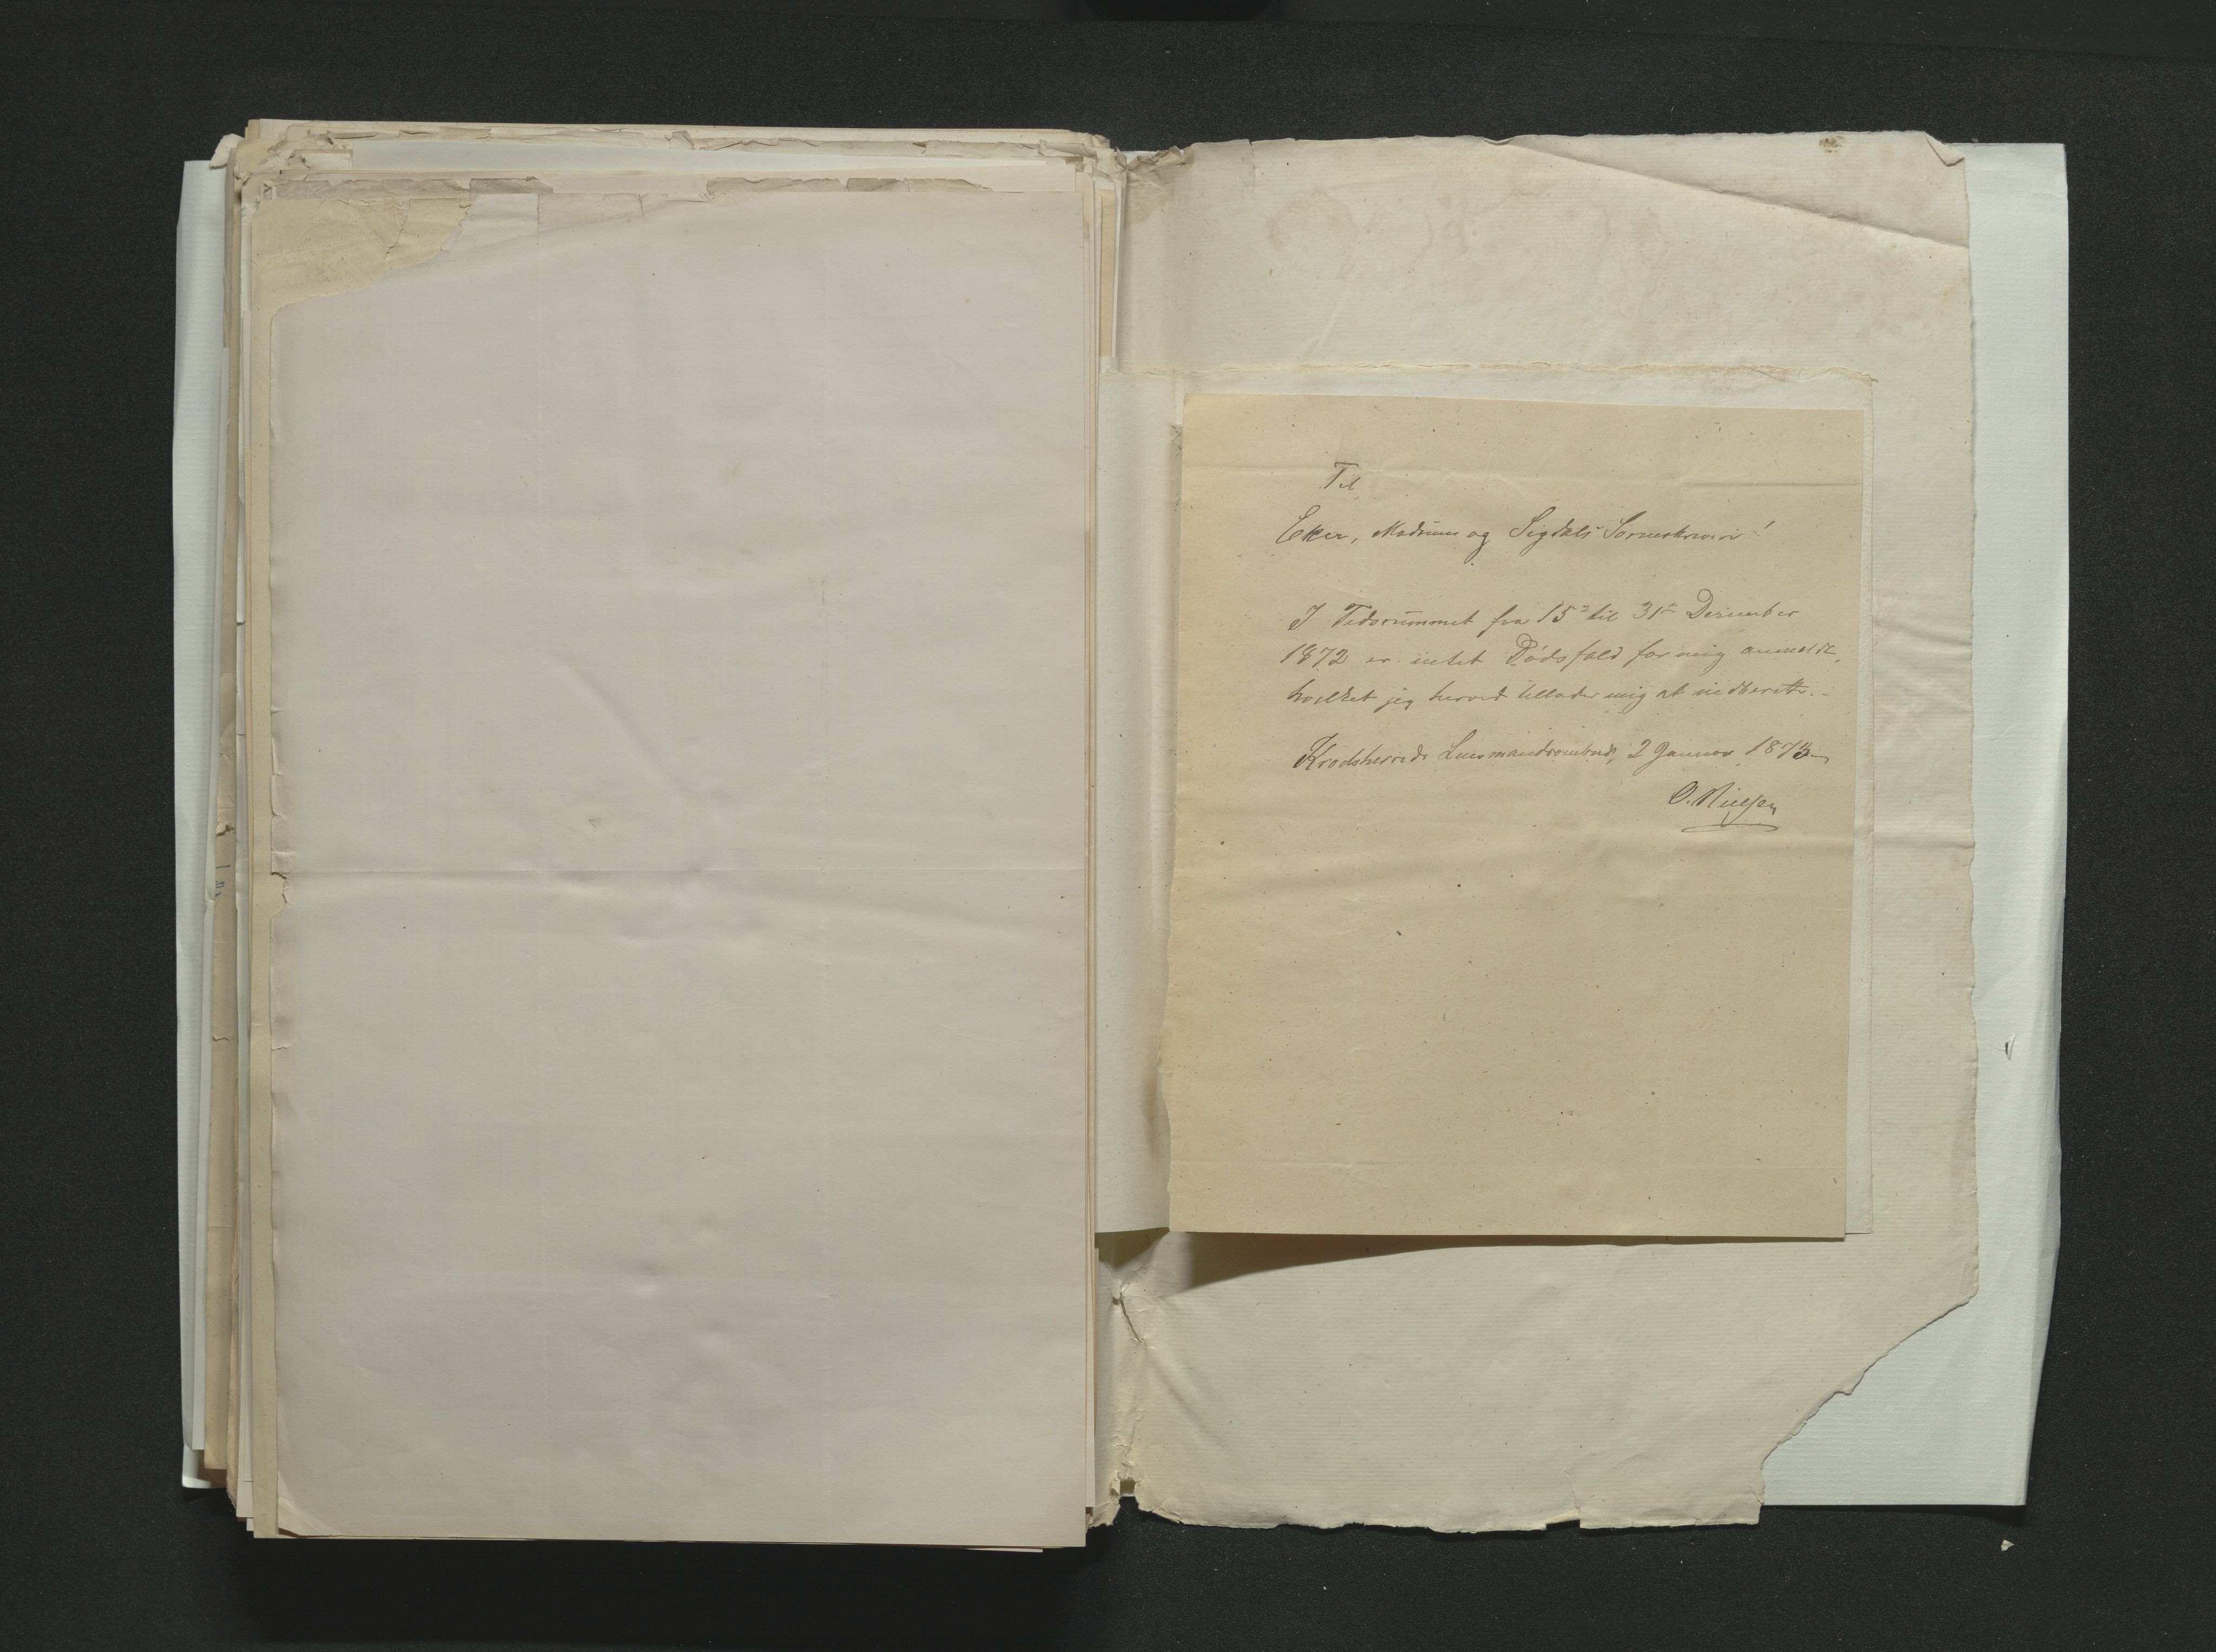 Til
Eker, Modums og Sigdals Sorenskriveri!
I Tidsrummet fra 15de til 31te December
1872 er intet Dødsfald for mig anmeldt,
hvilket jeg herved tillader mig at indberette.-
Krødsherreds Lensmandsombud, 2 Januar 1873
O. Nielsen